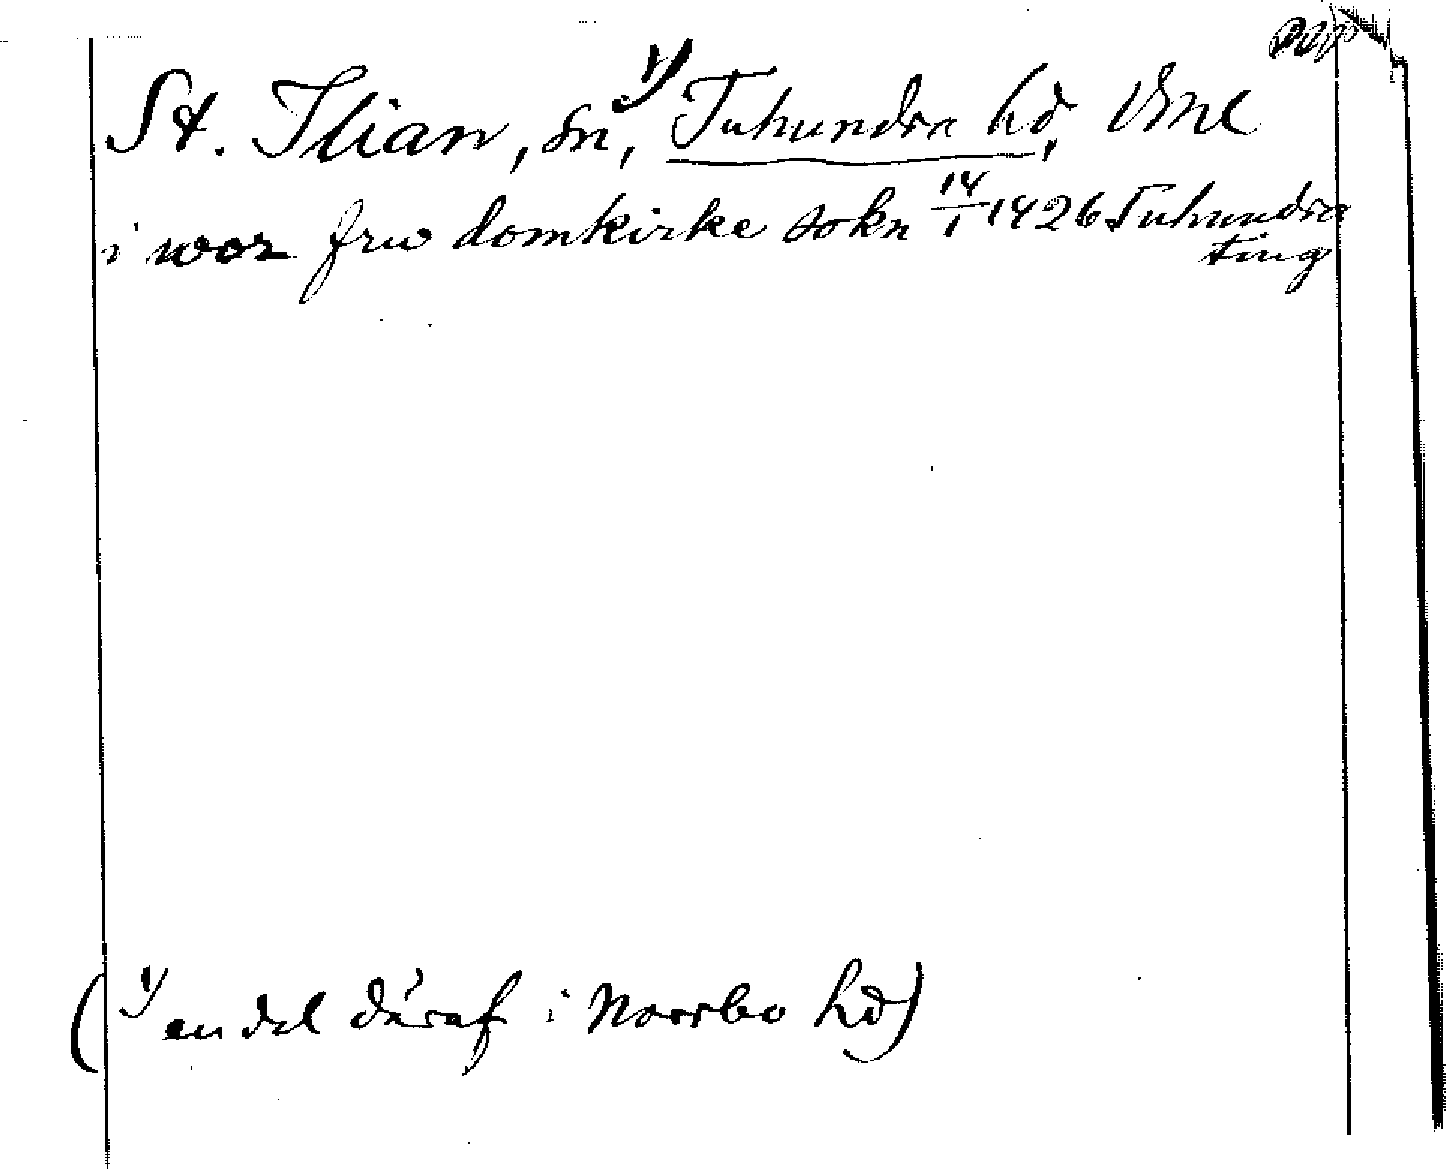 St. Ilian, sn,¹⁾ Tuhundra hd, Vml
i wor frw domkirke sokn 14/1 1426 Tuhundra
ting
(¹⁾ en del däraf i Norrbo hd)